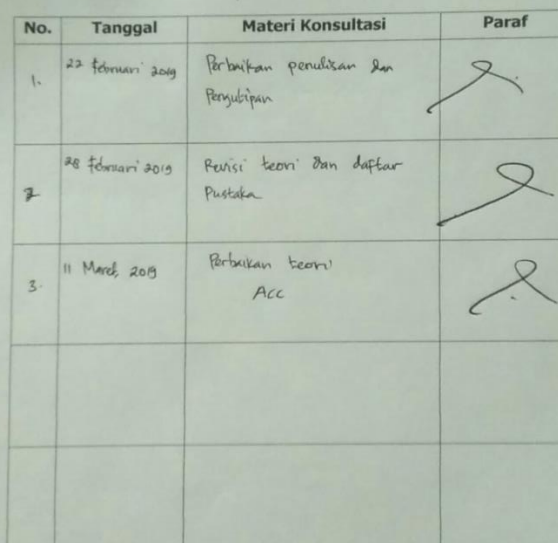 No. Tanggal Materi Konsultasi Paraf
1. 22 Februari 2019 Perbaikan penulisan dan
Pengutipan
2 28 Februari 2019 Revisi teori dan daftar
Pustaka
3. 11 Maret, 2019 Perbaikan teori
Acc